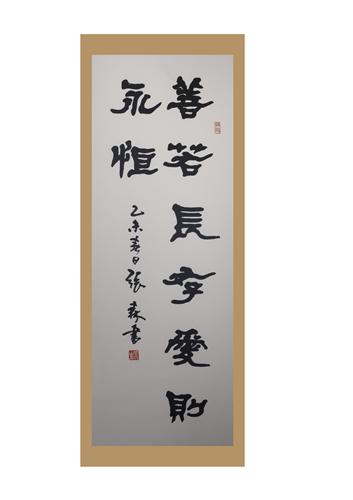 善若長存愛則
永恒
乙未春日張森書